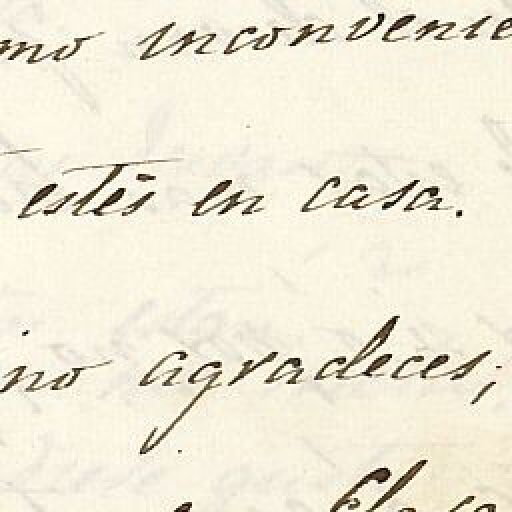 mo inconvenie
estés en casa.
no agradeces;